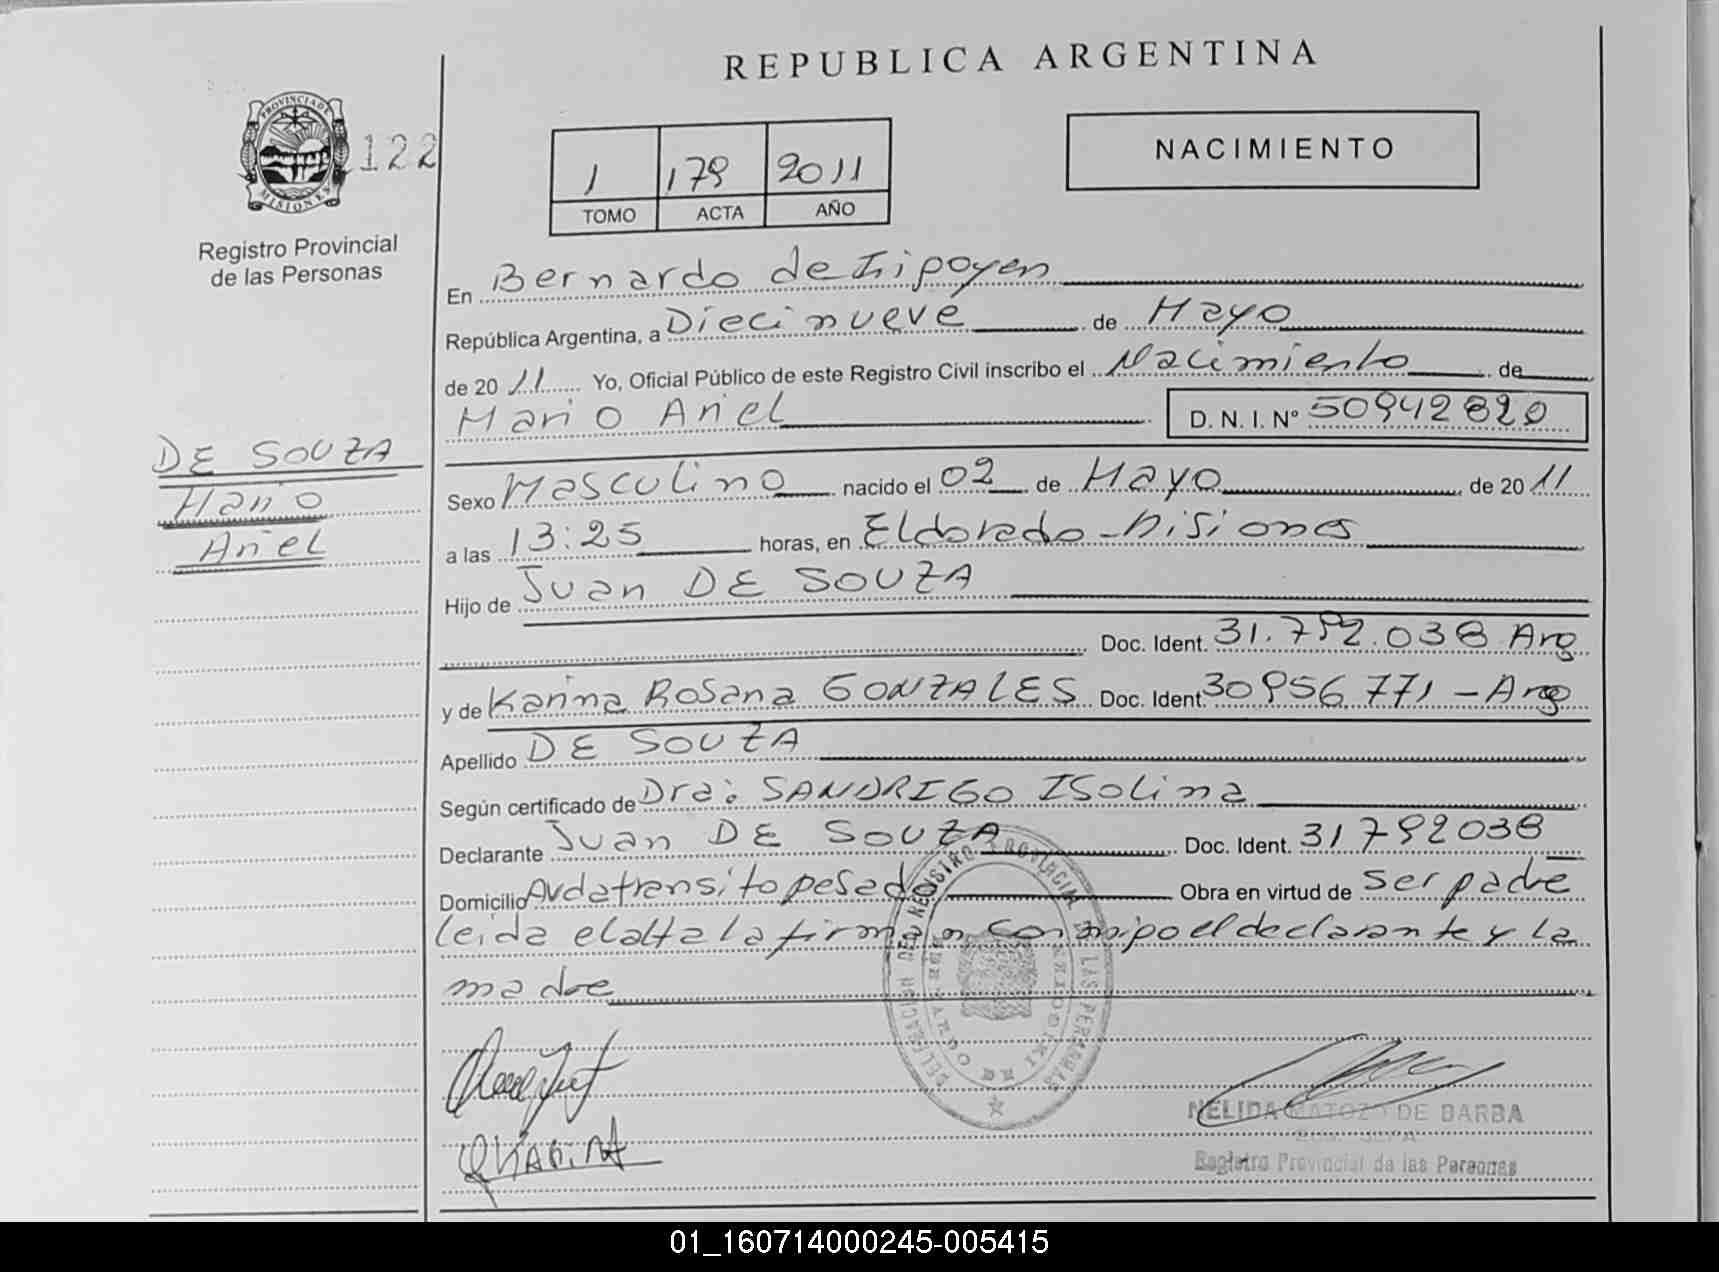 REPUBLICA ARGENTINA
PROVINCIA DE
MISIONES
122
Registro Provincial
de las Personas
1 179 2011
TOMO ACTA AÑO
NACIMIENTO
En Bernardo de Irigoyen
República Argentina, a Diecinueve de Mayo
de 2011 Yo, Oficial Público de este Registro Civil inscribo el Nacimiento de
Mario Ariel D. N. I. Nº 50942820
DE SOUZA
Mario
Ariel
Sexo Masculino nacido el 02 de Mayo de 2011
a las 13:25 horas, en Eldorado - Misiones
Hijo de Juan DE SOUZA
Doc. Ident. 31.792.038 Arg
y de Karina Rosana GONZALES Doc. Ident. 30956771 - Arg
Apellido DE SOUZA
Según certificado de Dra: SANDRIGO ISolina
Declarante Juan DE SOUZA Doc. Ident. 31792038
Domicilio Avda transito pesado Obra en virtud de ser padre
leida el acta la firman conmigo el declarante y la
madre
DELEGACION DEL REGISTRO PROVINCIAL DE LAS PERSONAS
KARINA
NELIDA MATOZO DE BARBA
Registro Provincial de las Personas
01_160714000245-005415